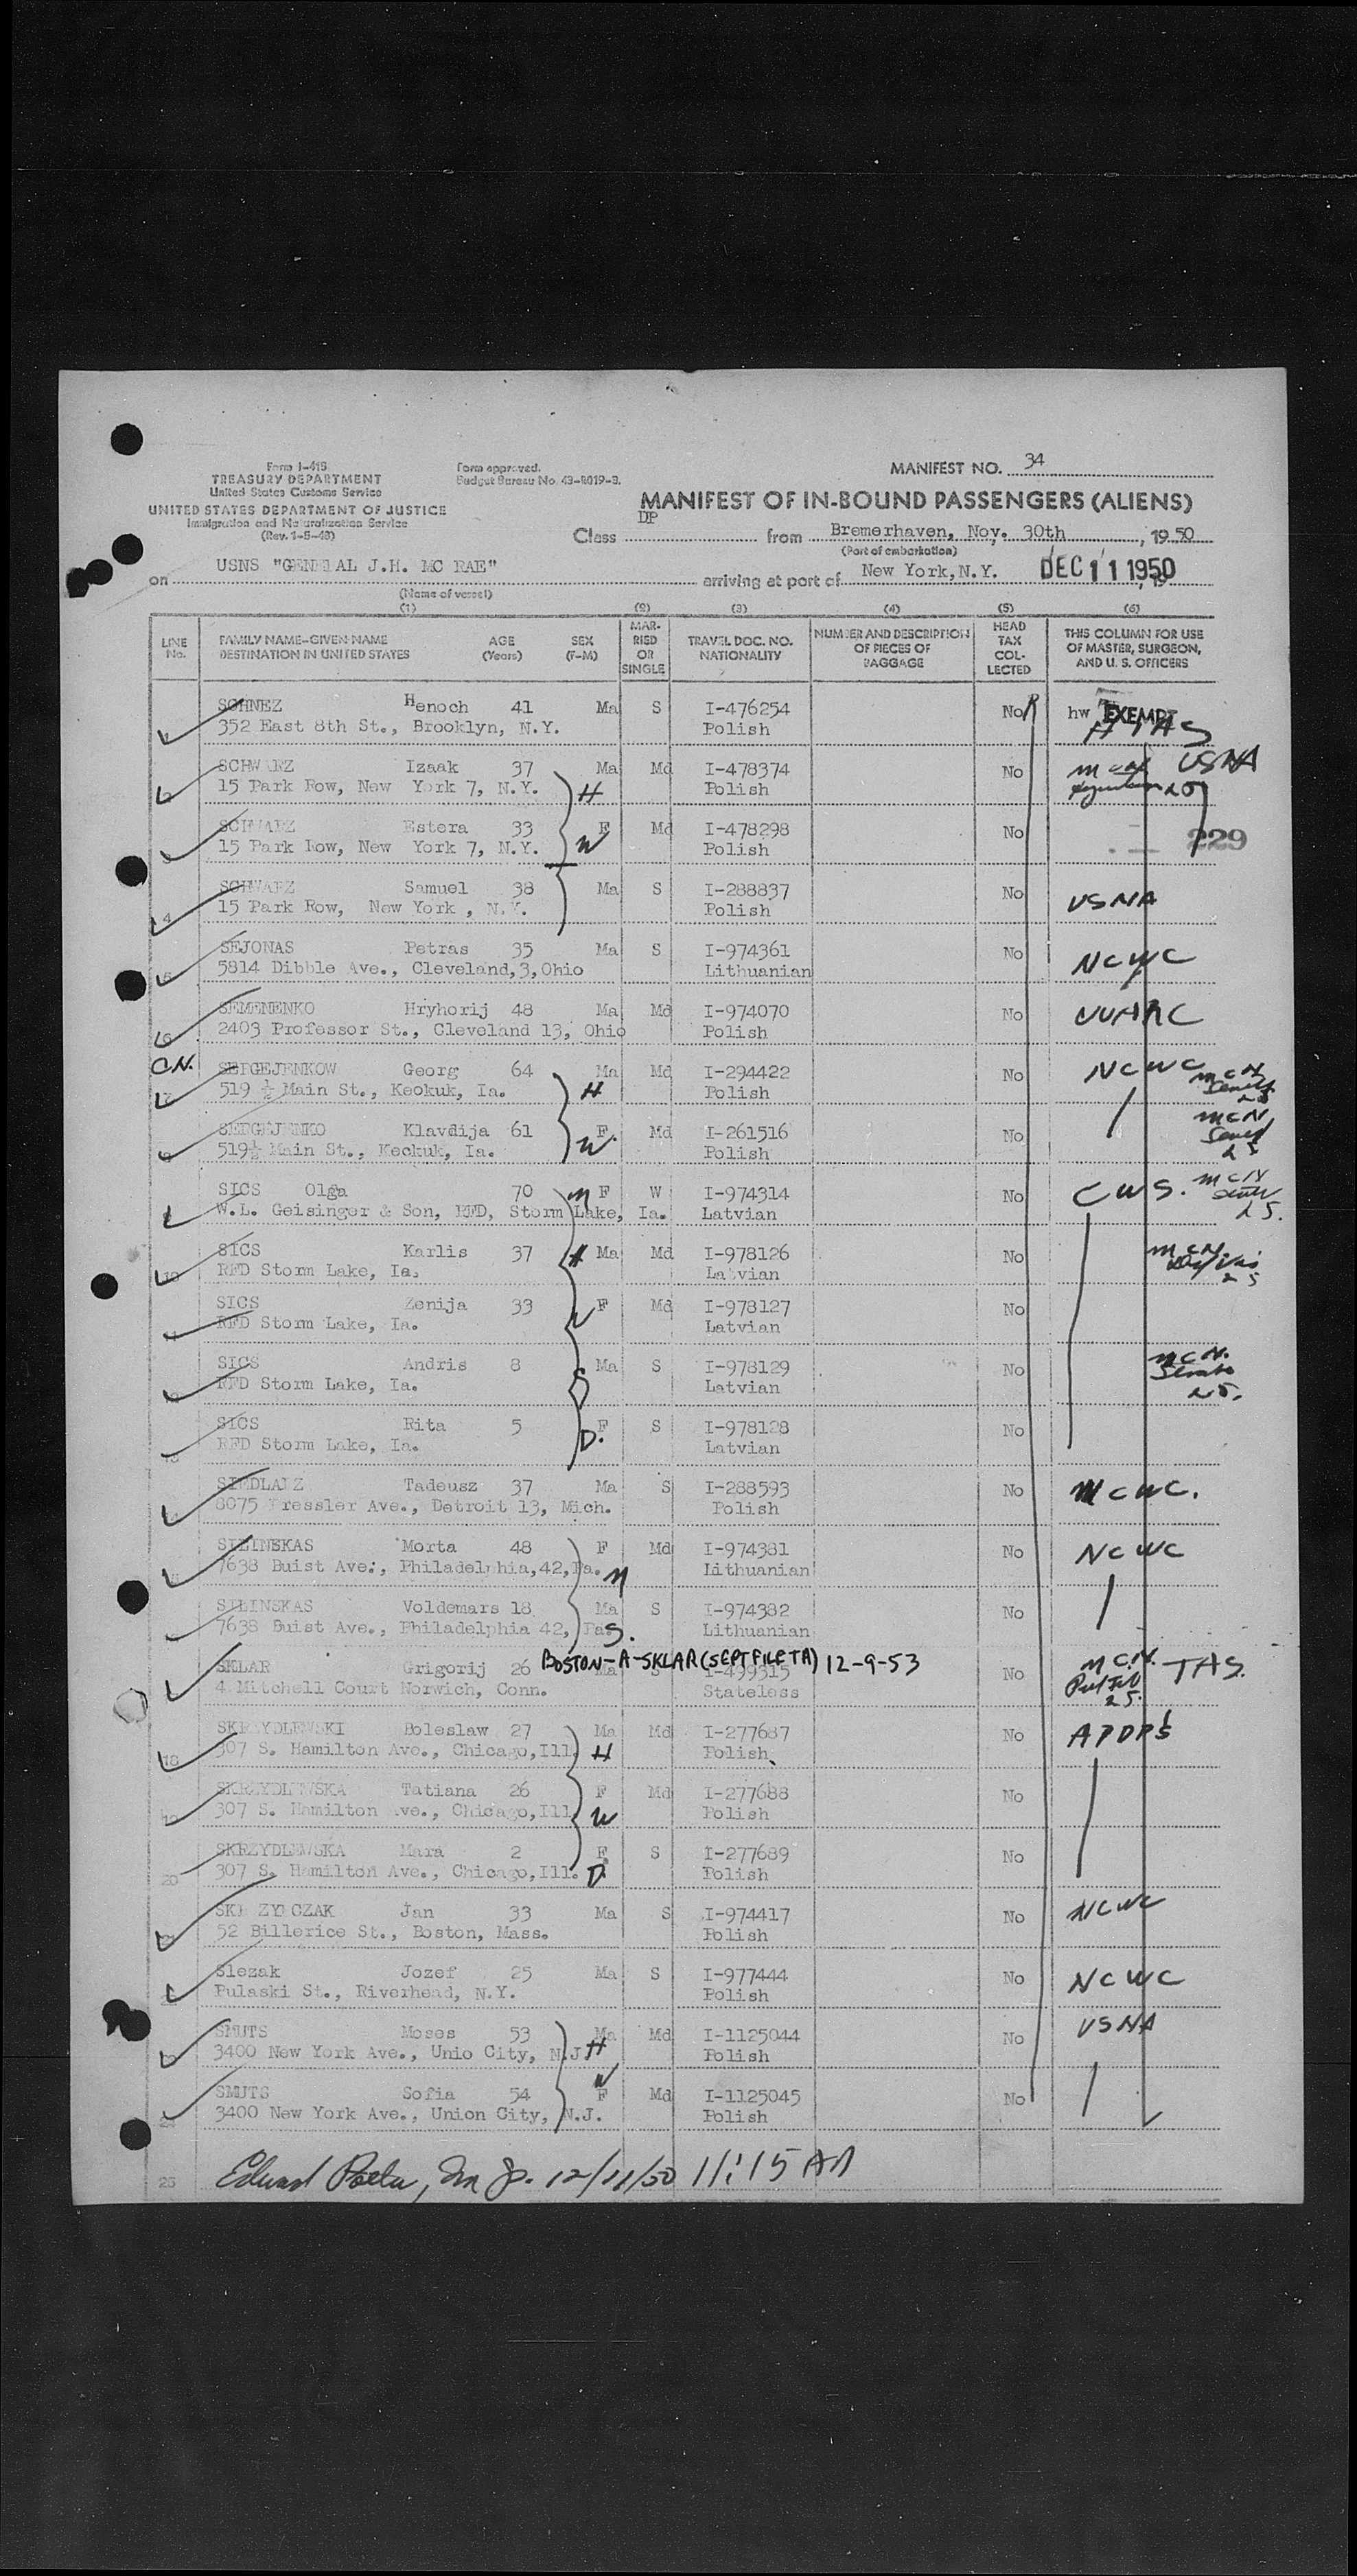 Form I-415
TREASURY DEPARTMENT
United States Customs Service
UNITED STATES DEPARTMENT OF JUSTICE
Immigration and Naturalization Service
(Rev. 1-5-48)
Form approved.
Budget Bureau No. 43-R019-3.
MANIFEST NO. 34
MANIFEST OF IN-BOUND PASSENGERS (ALIENS)
Class DP from Bremerhaven, Nov. 30th, 1950
(Port of embarkation)
on USNS "GENERAL J.H. MC RAE" arriving at port of New York, N.Y. DEC 11 1950
(Name of vessel)
(1) (2) (3) (4) (5) (6)
LINE No. FAMILY NAME-GIVEN NAME DESTINATION IN UNITED STATES AGE (Years) SEX (F-M) MARRIED OR SINGLE TRAVEL DOC. NO. NATIONALITY NUMBER AND DESCRIPTION OF PIECES OF BAGGAGE HEAD TAX COLLECTED THIS COLUMN FOR USE OF MASTER, SURGEON, AND U. S. OFFICERS
1 SCHNEZ Henoch 41 Ma S I-476254 No hw EXEMPT
352 East 8th St., Brooklyn, N.Y. Polish HIAS
2 SCHWARZ Izaak 37 Ma Md I-478374 No USNA
15 Park Row, New York 7, N.Y. H Polish
3 SCHWARZ Estera 33 F Md I-478298 No 229
15 Park Row, New York 7, N.Y. W Polish
4 SCHWARZ Samuel 38 Ma S I-288837 No USNA
15 Park Row, New York, N.Y. Polish
5 SEJONAS Petras 35 Ma S I-974361 No NCWC
5814 Dibble Ave., Cleveland,3,Ohio Lithuanian
6 SEMENENKO Hryhorij 48 Ma Md I-974070 No UUARC
2403 Professor St., Cleveland 13, Ohio Polish
C.N.
7 SERGEJENKOW Georg 64 Ma Md I-294422 No NCWC MCN
519 ½ Main St., Keokuk, Ia. H Polish
8 SERGEJENKO Klavdija 61 F. Md I-261516 No MCN
519½ Main St., Keokuk, Ia. W. Polish 25
9 SICS Olga 70 M F W I-974314 No CWS. MCN
W.L. Geisinger & Son, RFD, Storm Lake, Ia. Latvian 25.
10 SICS Karlis 37 H Ma Md I-978126 No MCN.
RFD Storm Lake, Ia. Latvian 25
11 SICS Zenija 33 W F Md I-978127 No
RFD Storm Lake, Ia. Latvian
12 SICS Andris 8 Ma S I-978129 No MCN.
RFD Storm Lake, Ia. S Latvian 25.
13 SICS Rita 5 F S I-978128 No
RFD Storm Lake, Ia. D. Latvian
SIEDLARZ Tadeusz 37 Ma S I-288593 No NCWC.
8075 Pressler Ave., Detroit 13, Mich. Polish
SILINSKAS Morta 48 F Md I-974381 No NCWC
7638 Buist Ave., Philadelphia,42,Pa. M Lithuanian
SILINSKAS Voldemars 18 Ma S I-974382 No
7638 Buist Ave., Philadelphia 42, Pa. S. Lithuanian
BOSTON-A-SKLAR (SEPT FILE TA) 12-9-53
SKLAR Grigorij 26 Ma S I-499315 No MCN. TAS.
4 Mitchell Court Norwich, Conn. Stateless 25.
18 SKRZYDLEWSKI Boleslaw 27 Ma Md I-277687 No APDPS
307 S. Hamilton Ave., Chicago,Ill. H Polish
19 SKRZYDLEWSKA Tatiana 26 F Md I-277688 No
307 S. Hamilton Ave., Chicago,Ill. W Polish
20 SKRZYDLEWSKA Mara 2 F S I-277689 No
307 S. Hamilton Ave., Chicago,Ill. D Polish
SKRZYPCZAK Jan 33 Ma S I-974417 No NCWC
52 Billerice St., Boston, Mass. Polish
Slezak Jozef 25 Ma S I-977444 No NCWC
Pulaski St., Riverhead, N.Y. Polish
SMUTS Moses 53 Ma Md I-1125044 No USNA
3400 New York Ave., Unio City, N.J. H Polish
24 SMUTS Sofia 54 W F Md I-1125045 No
3400 New York Ave., Union City, N.J. Polish
25 Edward 12/11/50 11:15 AM